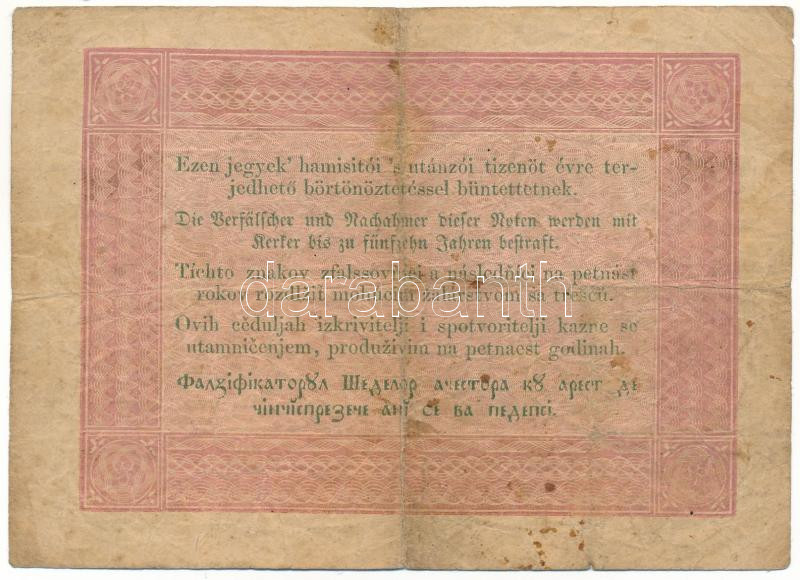 Ezen jegyek' hamisitói 's utánzói tizenöt évre ter-
jedhető börtönöztetéssel büntettetnek.
Die Verfälscher und Nachahmer dieser Noten werden mit
Kerker bis zu fünfzehn Jahren bestraft.
Tíchto znakov zfalssovňíci a následňíci na petnást
rokov rozdlžiť mohúcím žalárstvom sa trescú.
darabanth
Ovih céduljah izkrivitelji i spotvoritelji kazne se
utamničenjem, produživim na petnaest godinah.
Фалꙃіфікаторꙋл Шеделор ачестора кꙋ арест де
чінчіспрезече анї се ва педепсі.